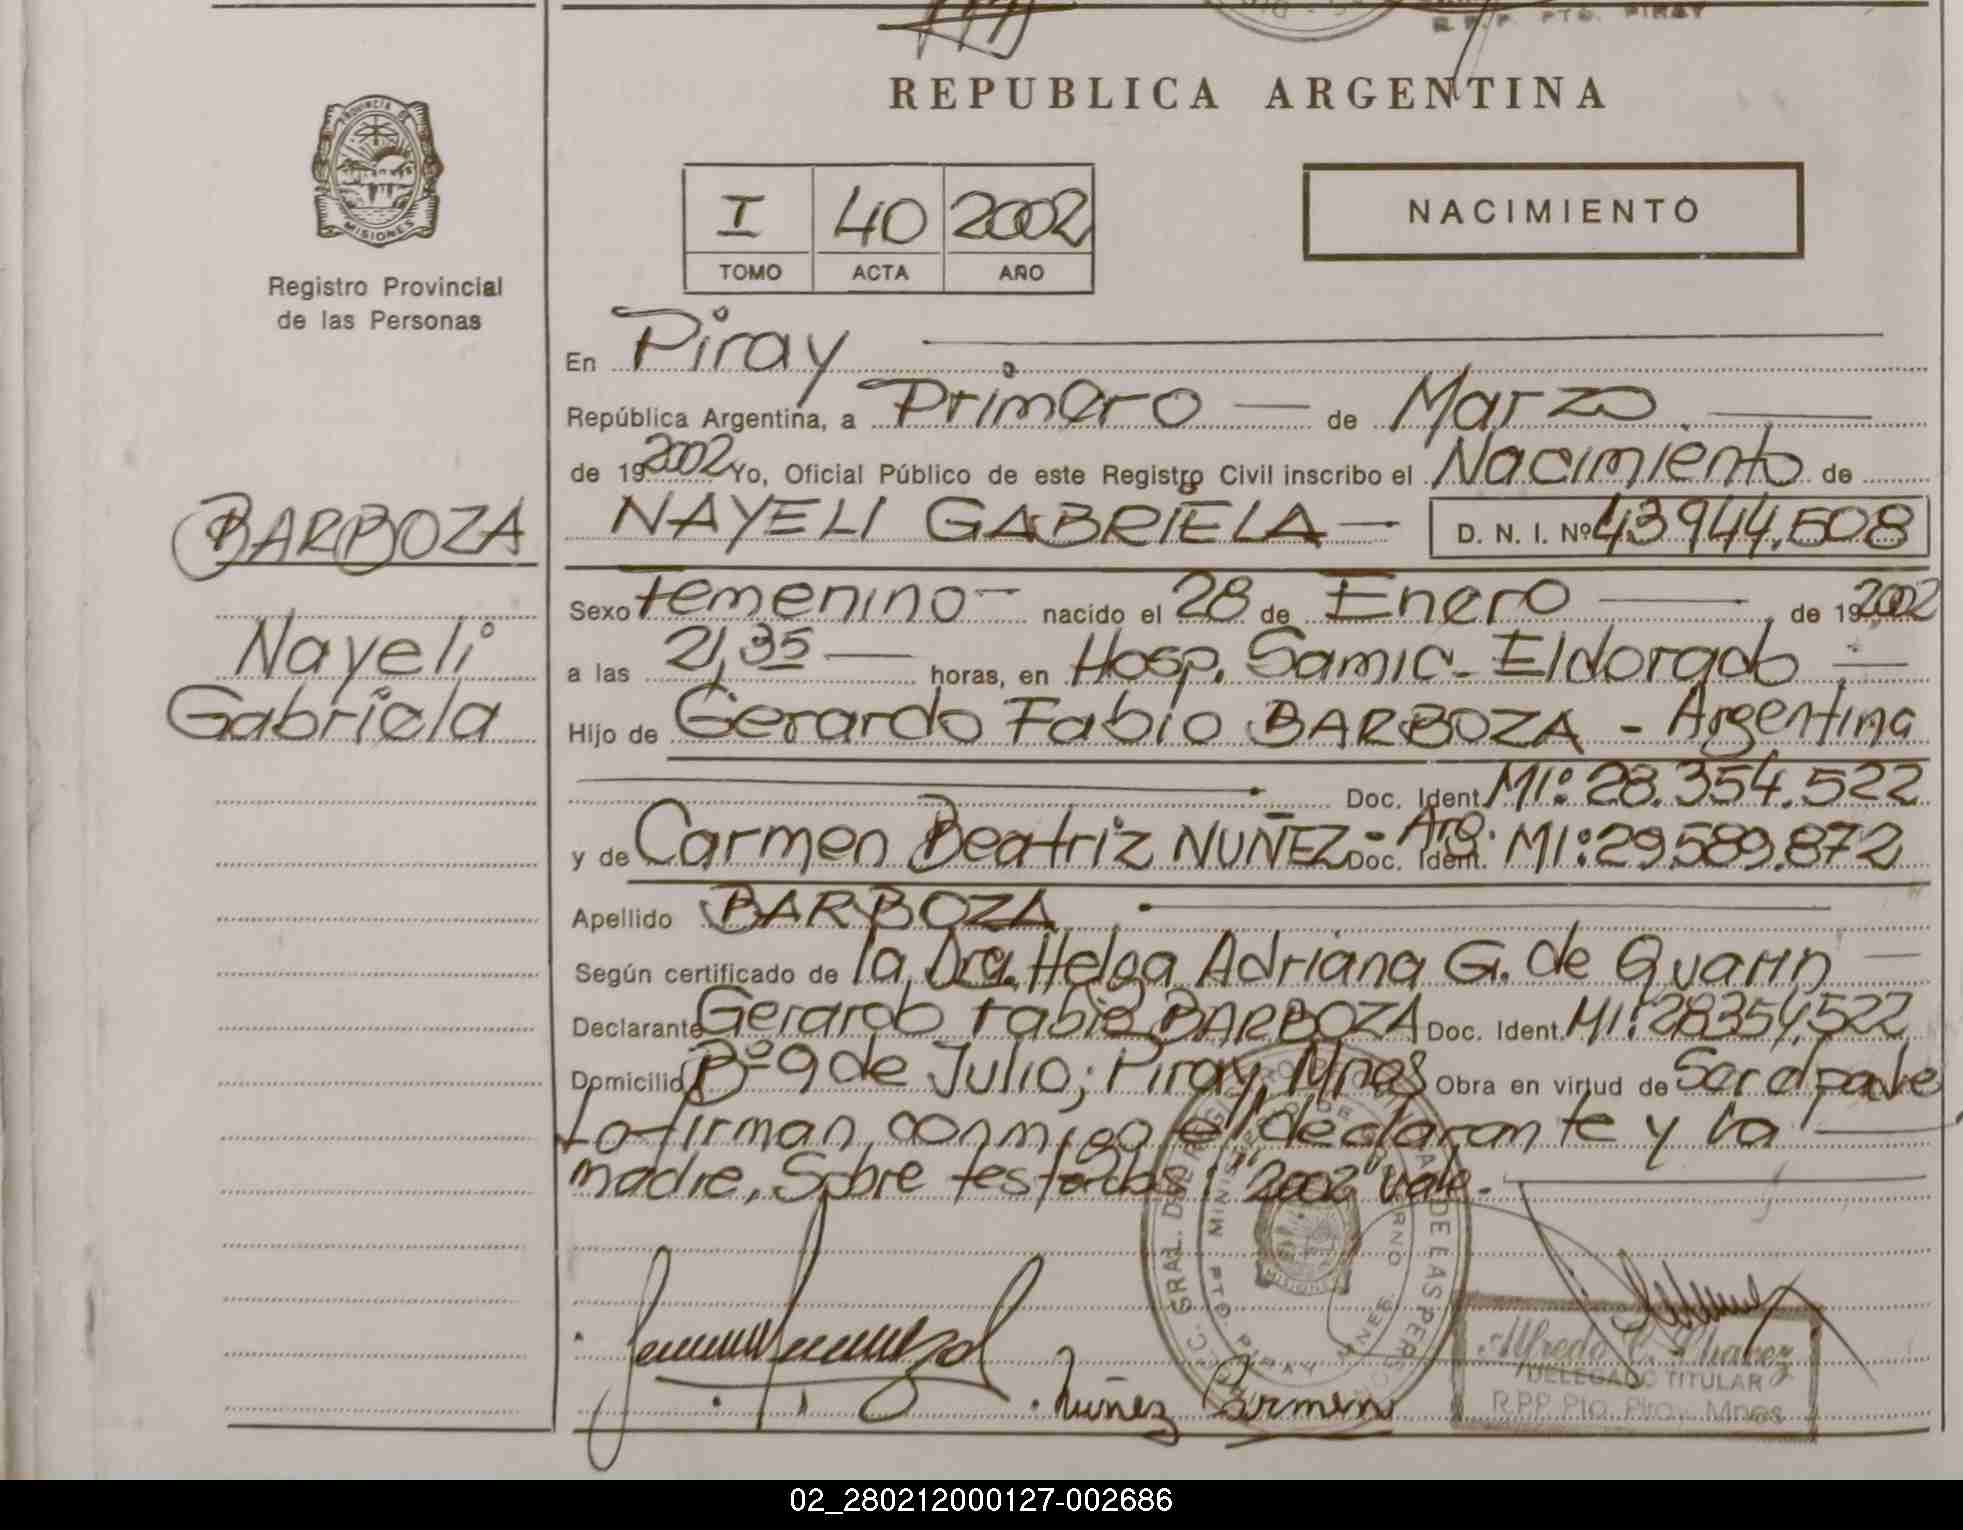 R.P.P. PTO. PIRAY
REPUBLICA ARGENTINA
PROVINCIA DE
MISIONES
Registro Provincial
de las Personas
I 40 2002
TOMO ACTA AÑO
NACIMIENTO
En Piray
República Argentina, a Primero de Marzo
de 19 2002 Yo, Oficial Público de este Registro Civil inscribo el Nacimiento de
BARBOZA
NAYELI GABRIELA D. N. I. Nº 43944.508
Sexo femenino nacido el 28 de Enero de 19 2002
Nayeli
a las 21,35 horas, en Hosp. Samic - Eldorado
Gabriela
Hijo de Gerardo Fabio BARBOZA - Argentina
Doc. Ident. MI: 28.354.522
y de Carmen Beatriz NUÑEZ - Arg. Doc. Ident. MI: 29589.872
Apellido BARBOZA
Según certificado de la Dra. Helga Adriana G. de
Declarante Gerardo Fabio BARBOZA Doc. Ident. MI: 28354,522
Domicilio Bº 9 de Julio; Piray, Mnes Obra en virtud de Ser el padre
Lo firman conmigo el declarante y la
madre, Sobre testados: "2002" vale.
PTO. PIRAY MNES.
MISIONES
Nuñez Carmen
Alfredo C. Chavez
DELEGADO TITULAR
R.P.P. Pto. Piray Mnes
02_280212000127-002686